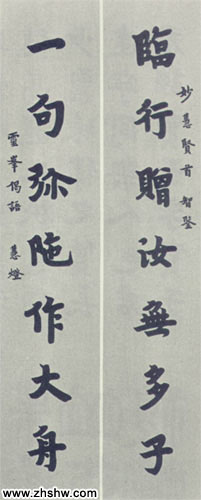 妙慧賢首 智鋻
臨行贈汝無多子
一句弥陁作大舟
靈峯偈語 慧燈
www.zhshw.com